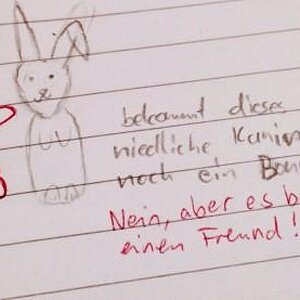 bekommt dieses
niedliche Kanin
noch ein Bon
Nein, aber es b
einen Freund!